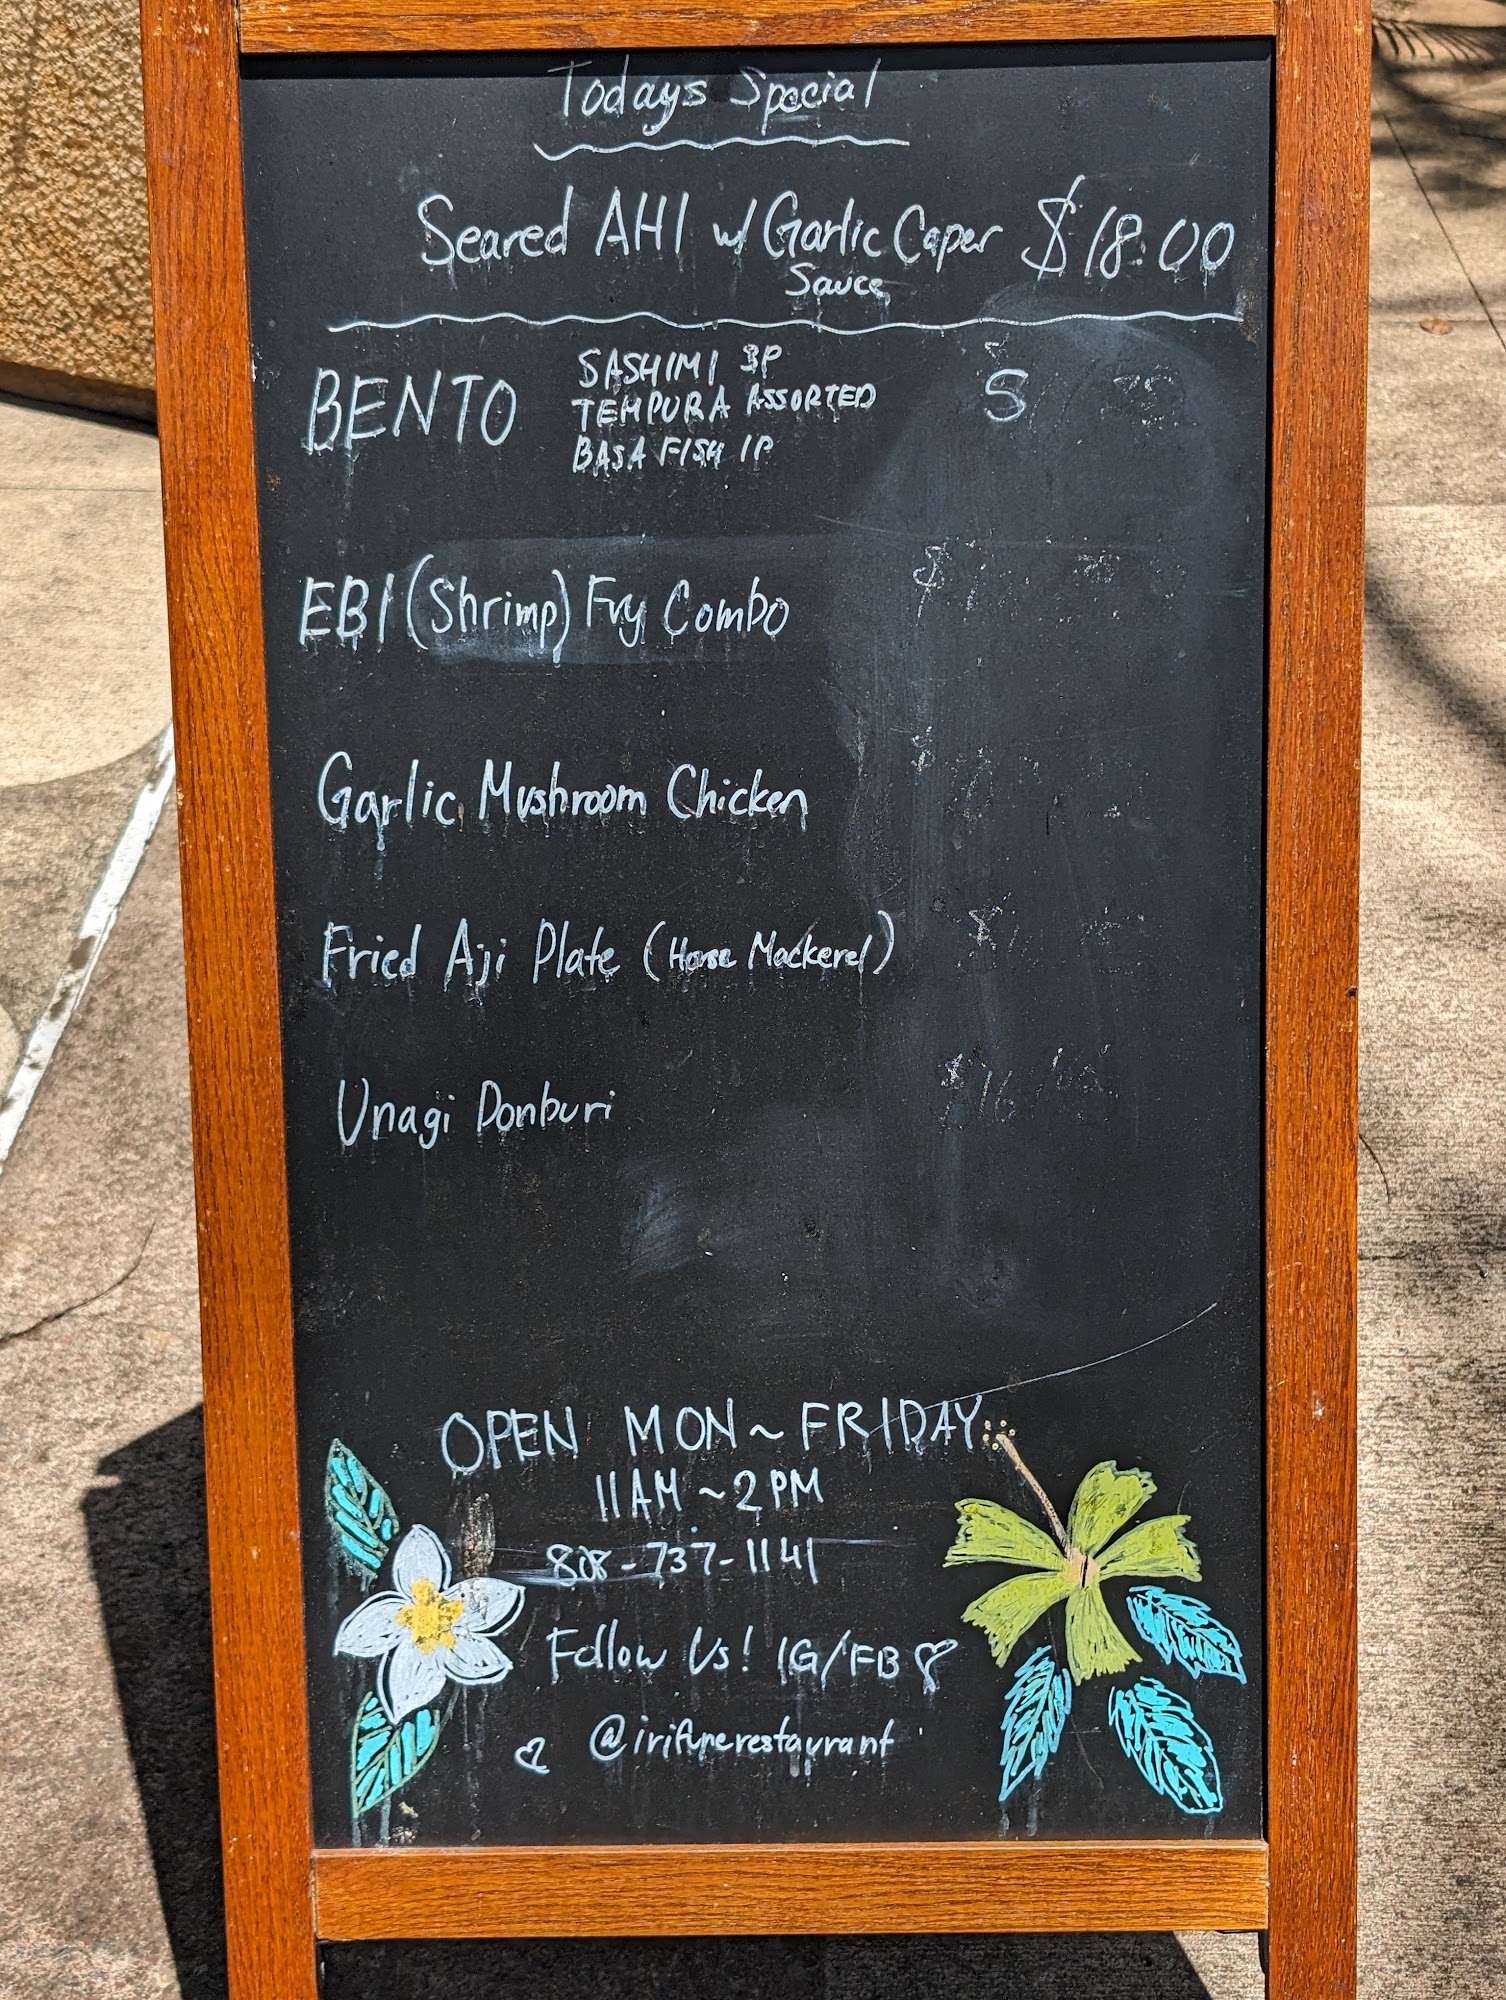 Todays Special
Seared AHI w/ Garlic Caper $18.00
Sauce
BENTO SASHIMI 3P
TEMPURA ASSORTED
BASA FISH 1P
EBI (Shrimp) Fry Combo
Garlic Mushroom Chicken
Fried Aji Plate (Horse Mackerel)
Unagi Donburi $16
OPEN MON~FRIDAY
11AM~2PM
808-737-1141
Follow Us! IG/FB
@irifunerestaurant